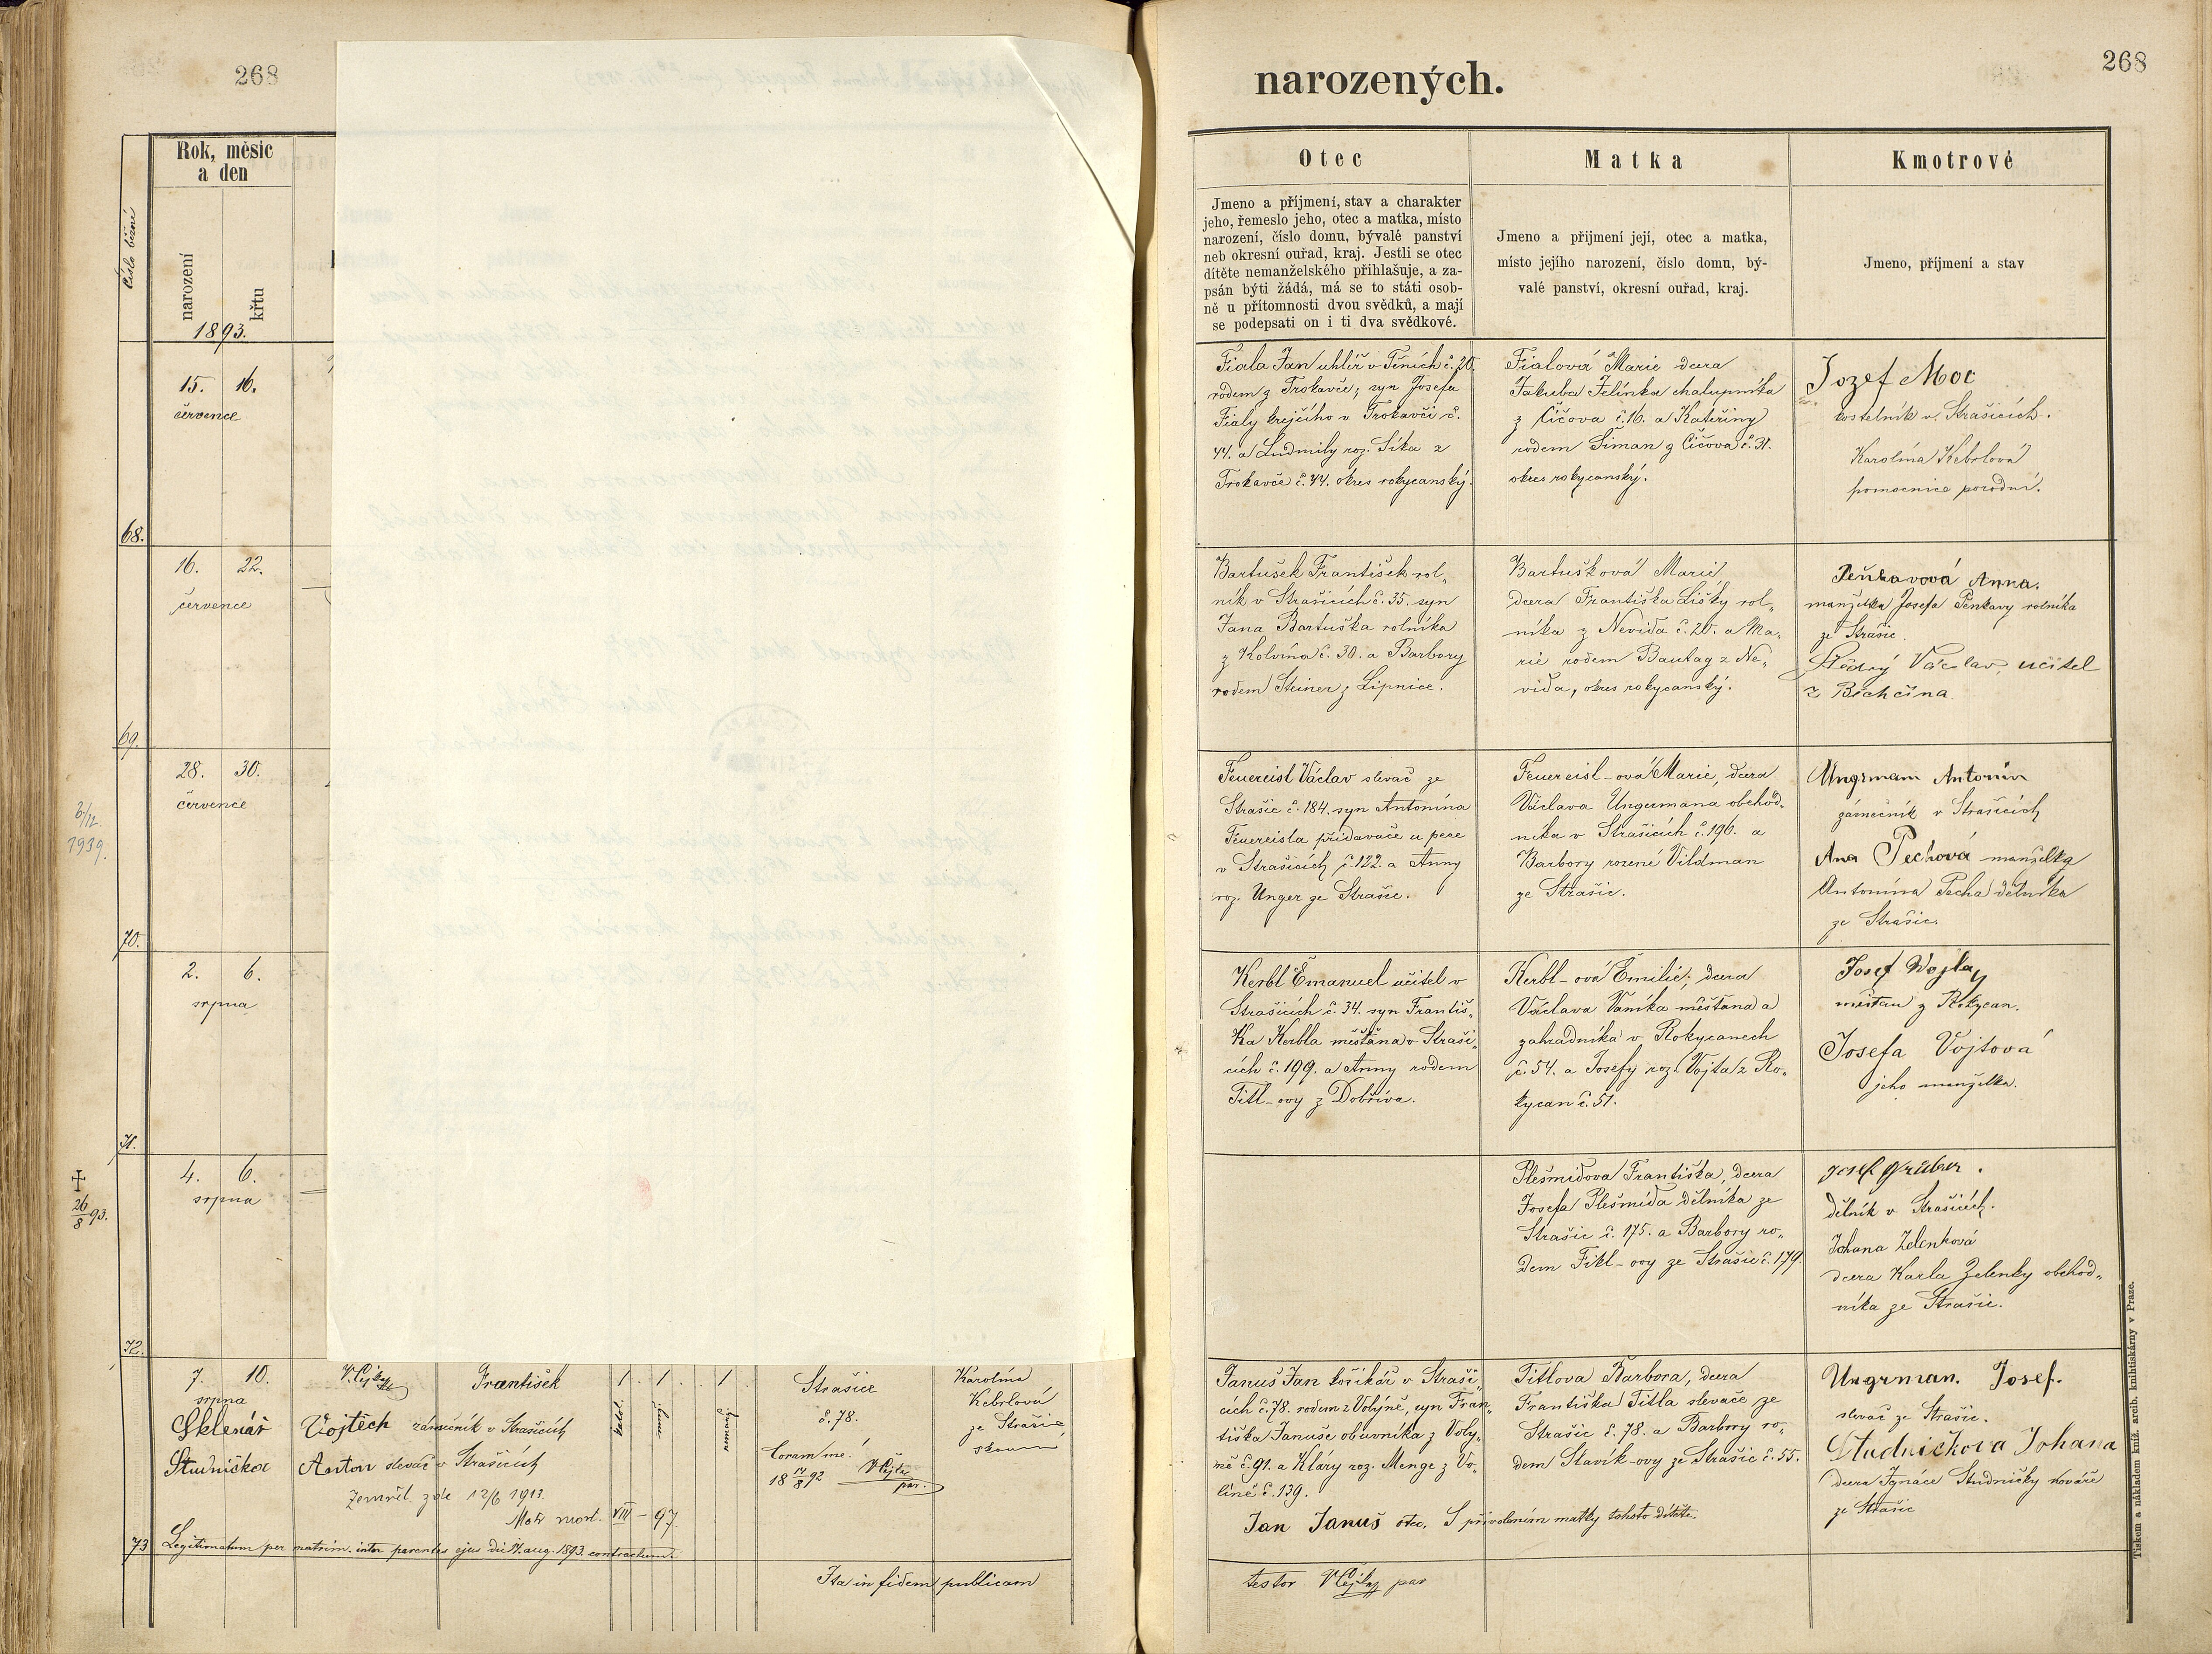 268
Rok, měsíc
a den
Číslo běžné
narození
křtu
1893.
15. 16.
července
68.
16. 22.
července
69.
28. 30.
července
6/12.
1939.
70.
2. 6.
srpna
71.
4. 6.
srpna
26/8 93.
72.
7. 10.
srpna
František
1 1 1
katol.
nemanž.
Strašice
č. 78.
Karolína
Kebrlová
ze Strašic
zkouš
Sklenář Vojtěch zámečník v Strašicích
Studnička Anton slevač v Strašicích
Coram me!
18 17/8 92
par.
Zemřel zde 12/6 1913.
Matr mort. VIII – 97.
73
Legitimatum per matrim. inter parentes ejus die 17. aug. 1893. contractum.
Ita in fidem publicam
narozených.
268
Otec
Jmeno a příjmení, stav a charakter
jeho, řemeslo jeho, otec a matka, místo
narození, číslo domu, bývalé panství
neb okresní ouřad, kraj. Jestli se otec
dítěte nemanželského přihlašuje, a za-
psán býti žádá, má se to státi osob-
ně u přítomnosti dvou svědků, a mají
se podepsati on i ti dva svědkové.
Matka
Jmeno a přijmení její, otec a matka,
místo jejího narození, číslo domu, bý-
valé panství, okresní ouřad, kraj.
Kmotrové
Jmeno, příjmení a stav
Fiala Jan uhlíř v Těních č. 20.
rodem z Trokavče, syn Josefa
Fialy krejčího v Trokavči č.
44. a Ludmily roz. Sika z
Trokavče č. 44. okres rokycanský.
Fialová Marie dcera
Jakuba Jelínka chalupníka
z Čičova č. 16. a Kateřiny
rodem Šiman z Čičova č. 31.
okres rokycanský.
Jozef Moc
kostelník v Strašicích.
Karolína Kebrlová
pomocnice porodní.
Bartušek František rol„
ník v Strašicích č. 35. syn
Jana Bartuška rolníka
z Kolvína č. 30. a Barbory
rodem Steiner z Lipnice.
Bartušková Marie
dcera Františka Lišky rol„
níka z Nevida č. 20. a Ma„
rie rodem Bautag z Ne„
vida, okres rokycanský.
Penkavová Anna.
manželka Josefa Penkavy rolníka
ze Strašic.
Štědrý Václav, učitel
z Bechčína.
Feuereisl Václav slevač ze
Strašic č. 184. syn Antonína
Feuereisla přidavače u pece
v Strašicích č. 122. a Anny
roz. Unger ze Strašic.
Feuereisl-ová Marie, dcera
Václava Ungermana obchod„
níka v Strašicích č. 196. a
Barbory rozené Vildman
ze Strašic.
Ungrmann Antonín
zámečník v Strašicích
Ana Pechová manželka
Antonína Pecha dělníka
ze Strašic.
Kerbl Emanuel učitel v
Strašicích č. 34. syn Františ„
ka Kerbla měšťana v Straši„
cích č. 199. a Anny rodem
Titl-ovy z Dobříva.
Kerbl-ová Emilie, dcera
Václava Vaníka měšťana a
zahradníka v Rokycanech
č. 54. a Josefy roz. Vojta z Ro„
kycan č. 51.
Josef Wojta
měšťan z Rokycan.
Josefa Vojtová
jeho manželka.
Plešmídova Františka, dcera
Josefa Plešmída dělníka ze
Strašic č. 175. a Barbory ro„
dem Fikl-ovy ze Strašic č. 179.
Josef Gruber.
dělník v Strašicích.
Johana Zelenková
dcera Karla Zelenky obchod„
níka ze Strašic.
Januš Jan košíkář v Straši„
cích č. 78. rodem z Volyně, syn Fran„
tiška Januše obuvníka z Voly„
ně č. 91. a Kláry roz. Menge z Vo„
líně č. 139.
Titlova Barbora, dcera
Františka Titla slevače ze
Strašic č. 78. a Barbory ro„
dem Slavík-ovy ze Strašic č. 55.
Ungrman. Josef.
slevač ze Strašic.
Studničkova Johana
dcera Ignáce Studničky kováře
ze Strašic
Jan Januš otec. S přivolením matky tohoto dítěte.
testor par
Tiskem a nákladem kníž. arcib. knihtiskárny v Praze.